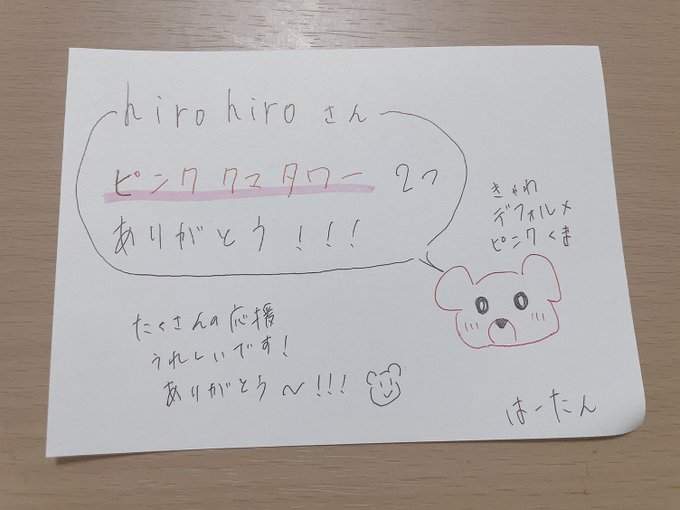 hiro hiro さん
ピンククマタワー 2つ
ありがとう!!!
きゃわ
デフォルメ
ピンクくま
たくさんの応援
うれしいです!
ありがとう〜!!!
はーたん